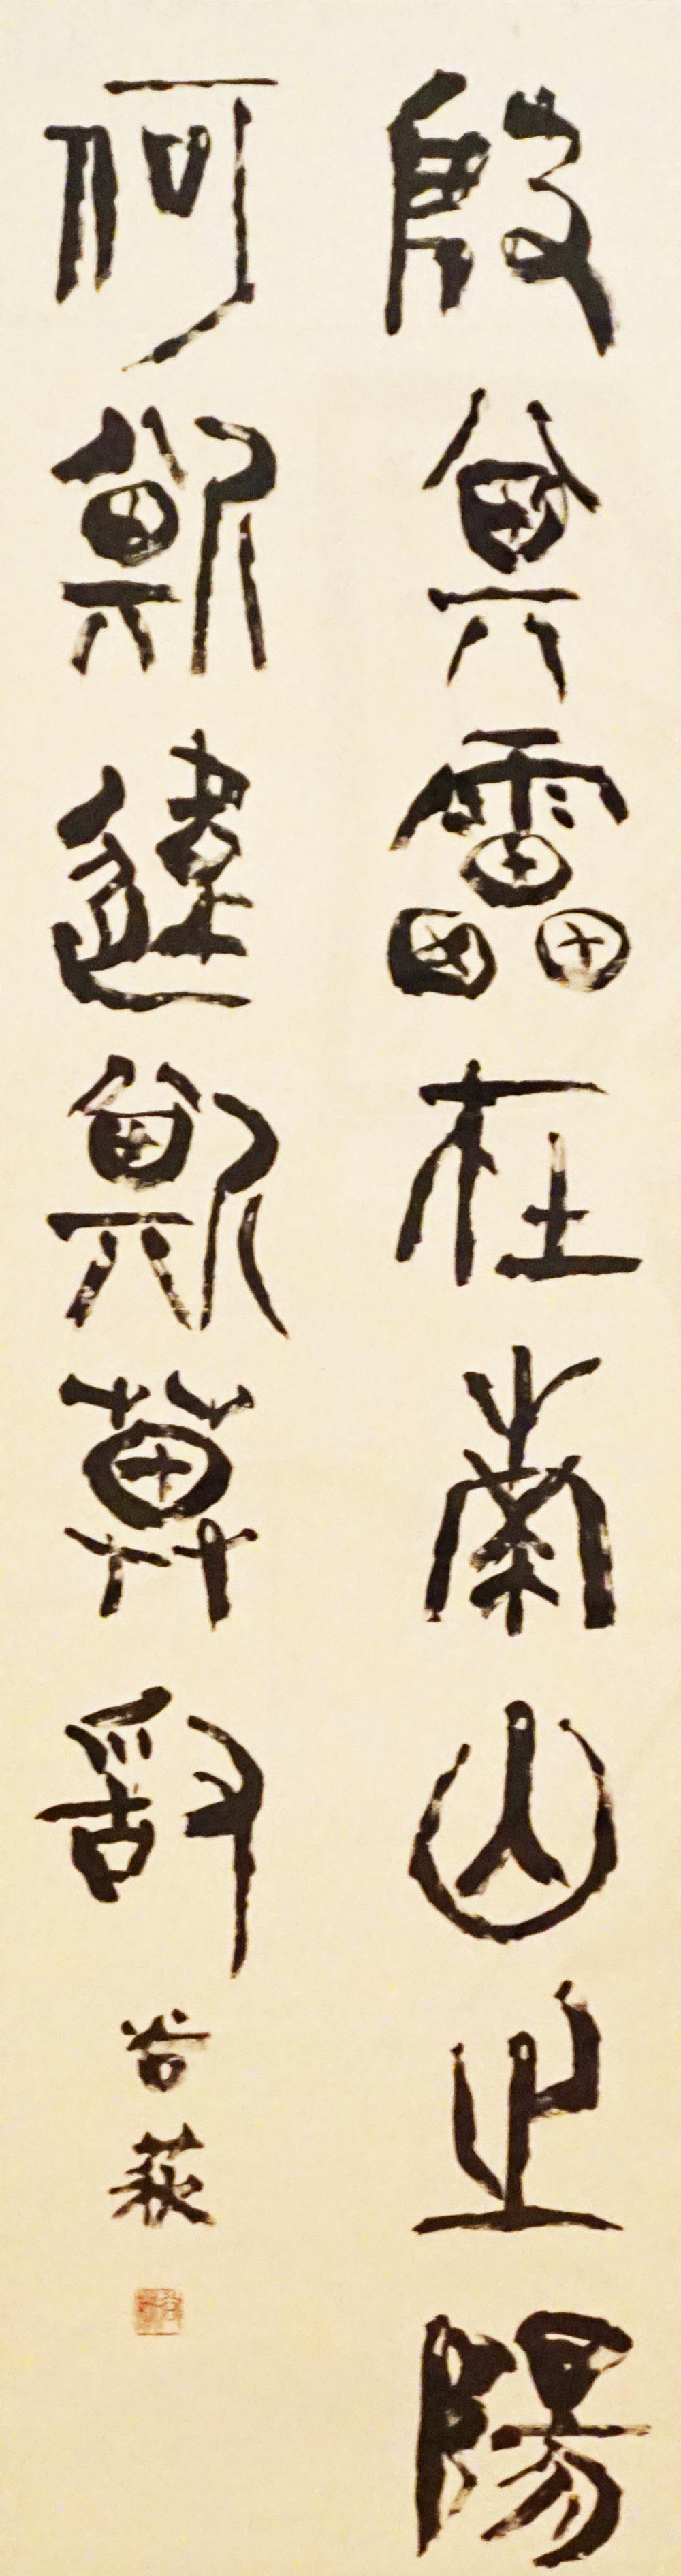 殷其靁在南山之陽
何斯違斯莫敢
谷萩